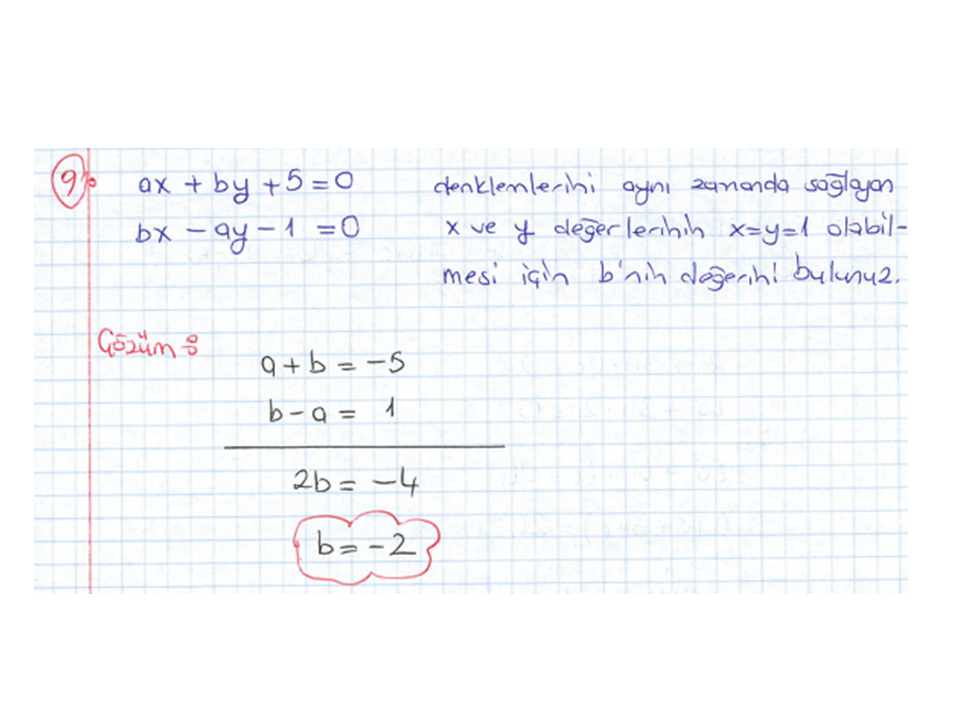 9)
ax + by + 5 = 0 denklemlerini aynı zamanda sağlayan
bx - ay - 1 = 0 x ve y değerlerinin x=y=1 olabil-
mesi için b'nin değerini bulunuz.
Çözüm:
a + b = -5
b - a = 1
2b = -4
b = -2